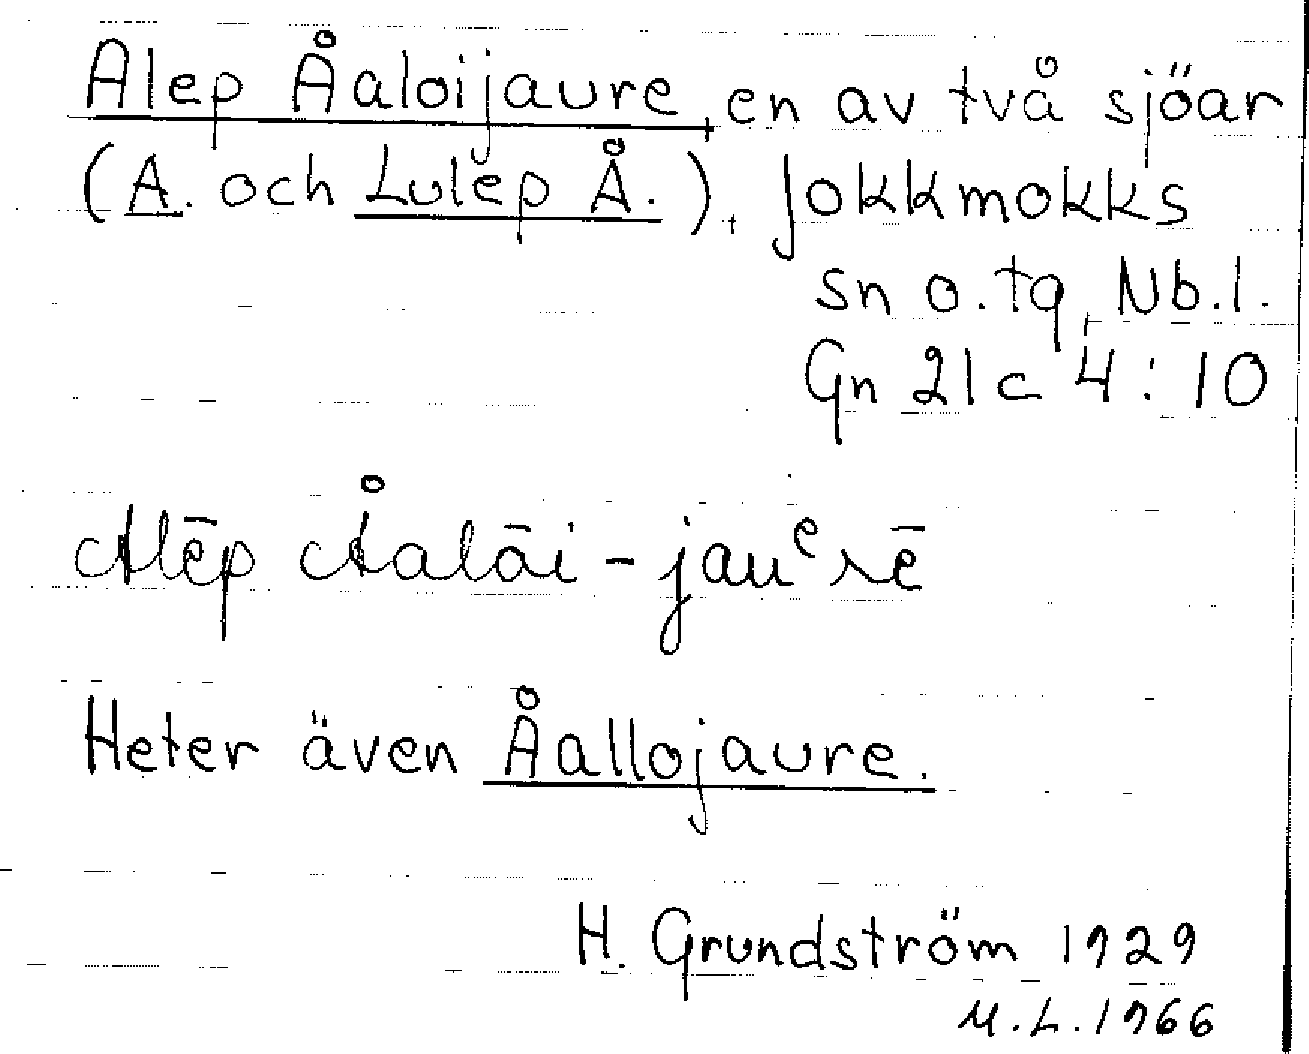 Alep Åaloijaure, en av två sjöar
(A. och Lulep Å.), Jokkmokks
sn o. tg, Nb. l.
Gn 21c 4:10
Alēp Åalåi-jauᵉrē
Heter även Åallojaure.
H. Grundström 1929
M.L. 1966